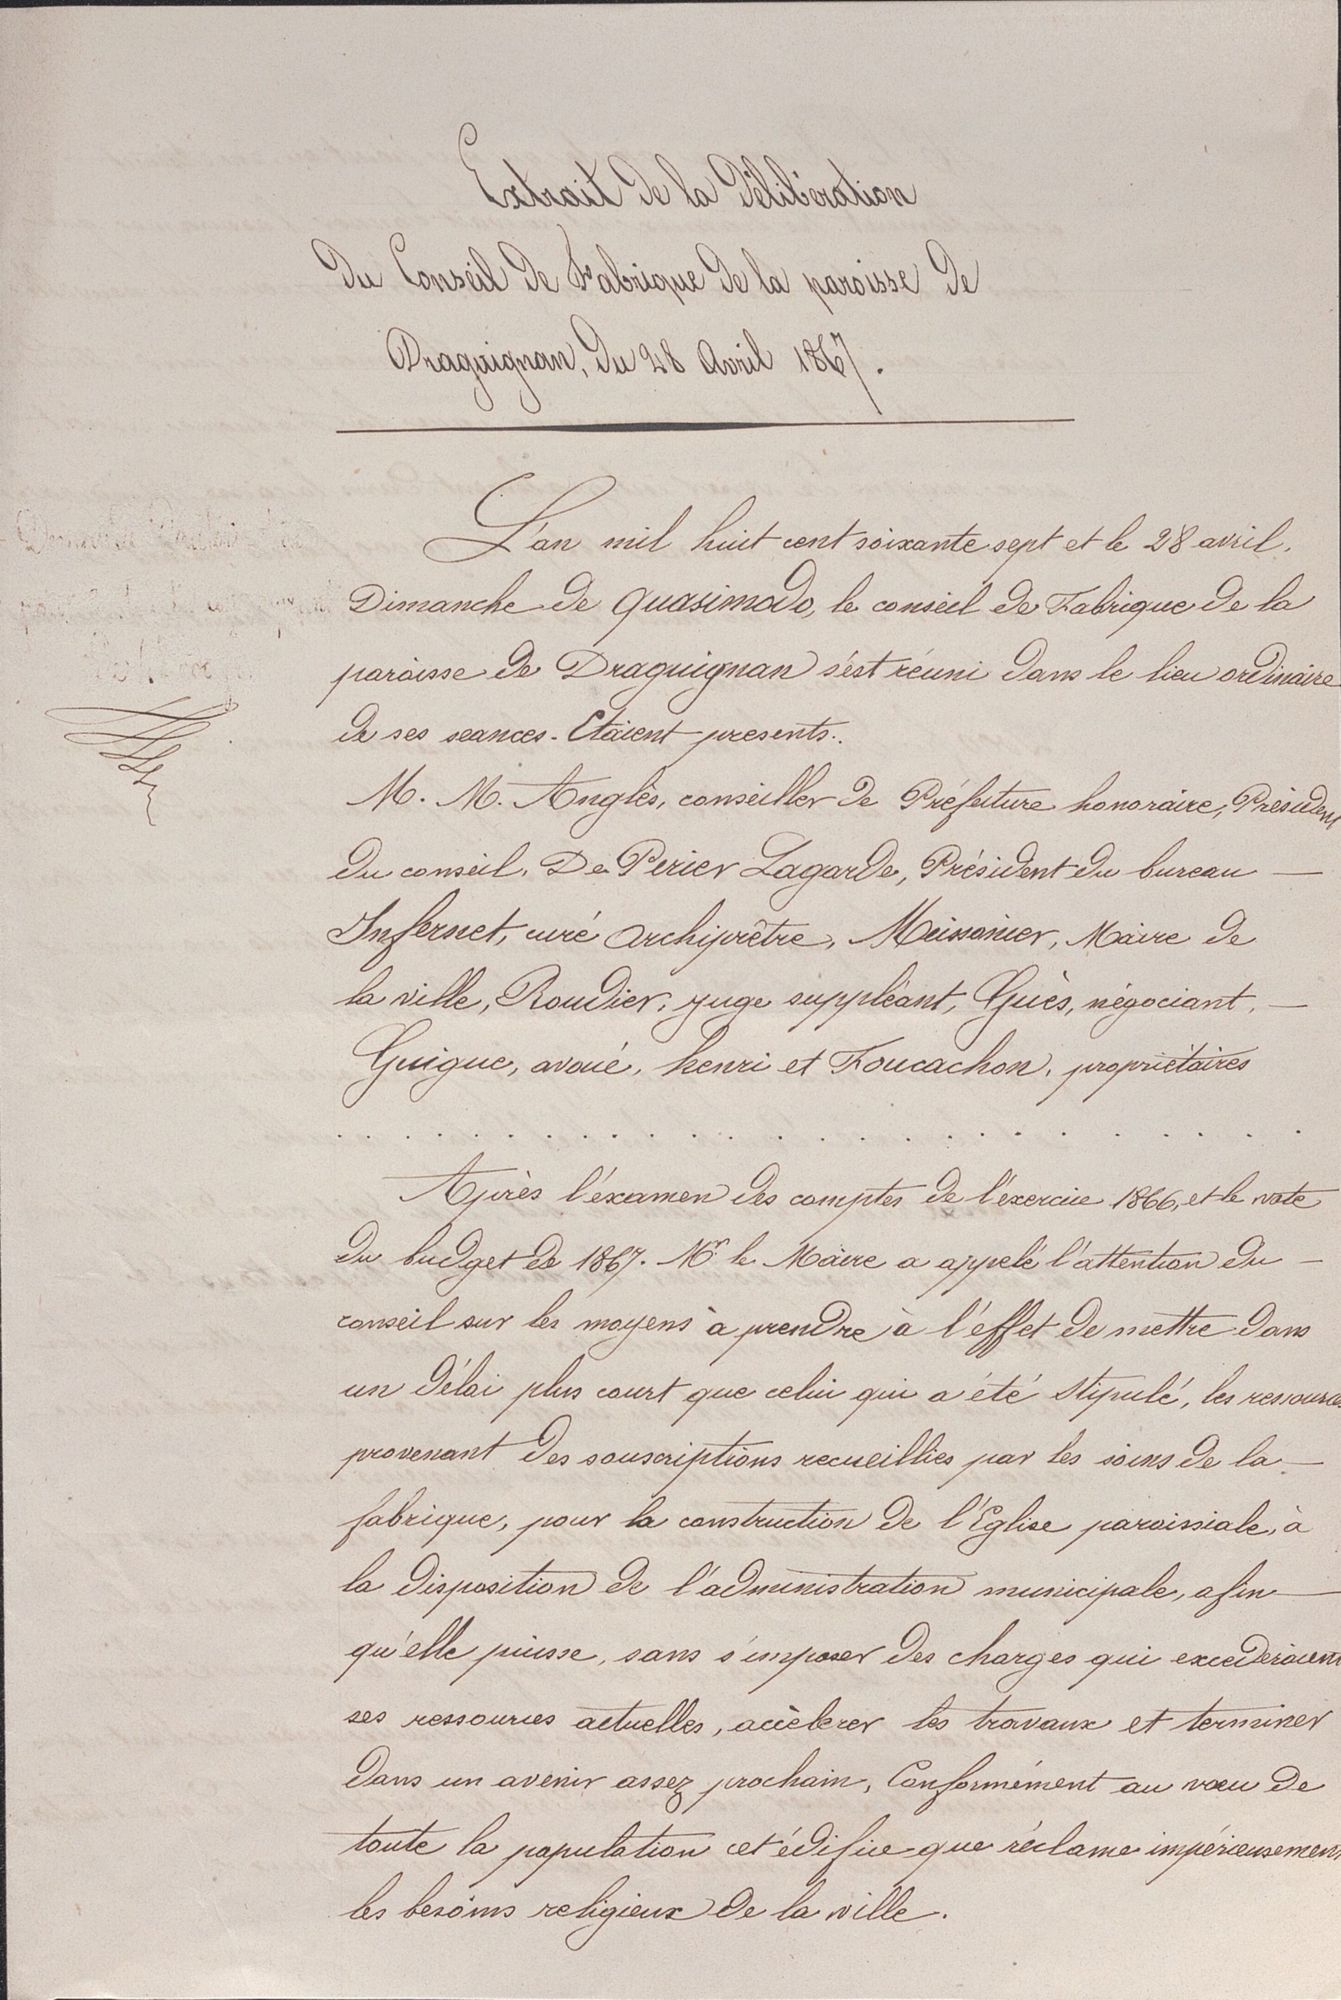 Extrait de la Délibération
du Conseil de Fabrique de la paroisse de
Draguignan, du 28 Avril 1867.
L'an mil huit cent soixante sept et le 28 avril,
Dimanche de Quasimodo, le conseil de Fabrique de la
paroisse de Draguignan s'est réuni dans le lieu ordinaire
de ses seances. Etaient presents.
M. M. Anglès, conseiller de Préfecture honoraire, Président
du conseil, De Perier Lagarde, Président du bureau —
Infernet, curé archiprêtre, Meissonier, Maire de
la ville, Roudier, juge suppléant, Guès, négociant, —
Guigue, avoué, henri et Foucachon, propriétaires
. . . . . . . . . . . . . . . . . . . . . . . .
Après l'éxamen des comptes de l'éxercice 1866, et le vote
du budget de 1867. Mr le Maire a appelé l'attention du —
conseil sur les moyens à prendre à l'éffet de mettre dans
un délai plus court que celui qui a été stipulé, les ressources
provenant des souscriptions recueillies par les soins de la —
fabrique, pour la construction de l'Eglise paroissiale, à
la disposition de l'administration municipale, afin —
qu'elle puisse, sans s'imposer des charges qui excederaient
ses ressources actuelles, accèlerer les travaux et terminer
dans un avenir assez prochain, Conformément au vœu de
toute la population cet édifice que réclame impérieusement
les besoins religieux de la ville.